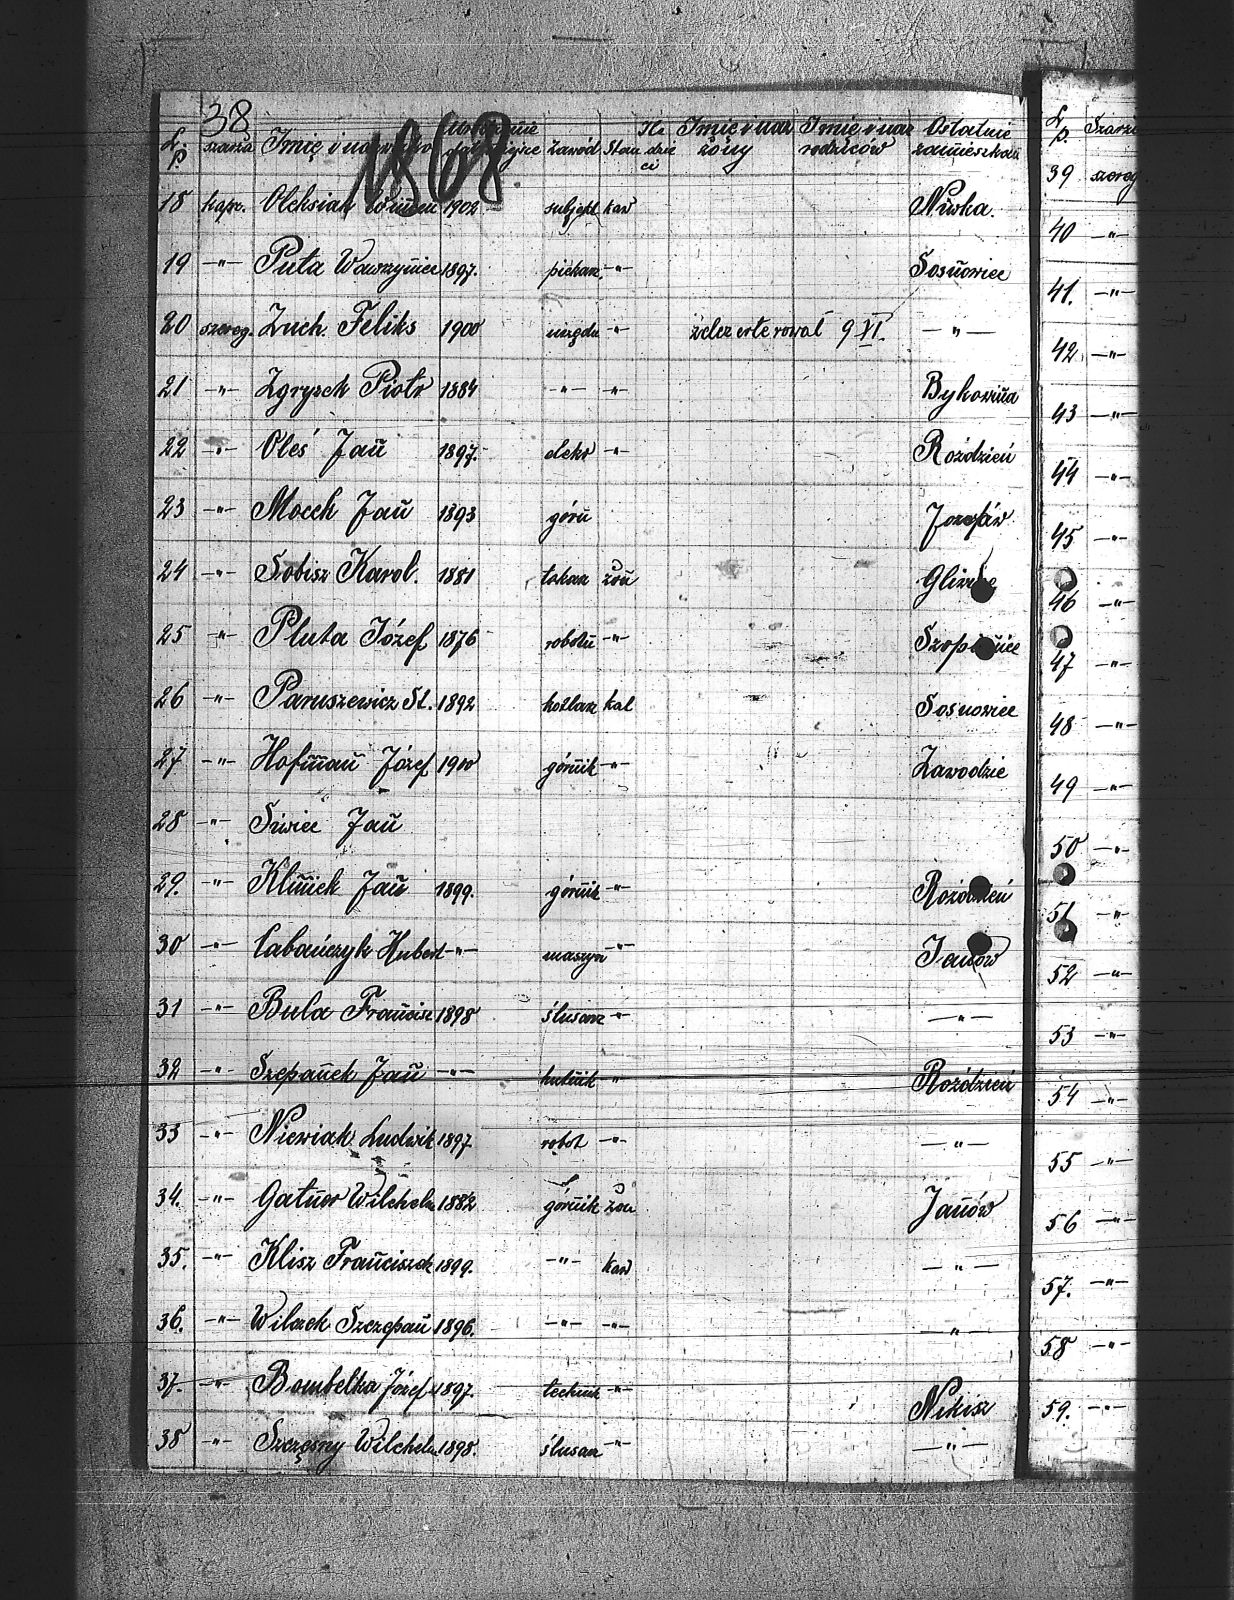 38
1868
L.p. szarża Imię i nazwisko Zawód Stan Ile dzieci Imię i naz żony Imię i naz rodziców Ostatnie zamieszkan
18 kapr. Oleksiak 1902 subjekt kaw Niwka.
19 -"- Puta Wawrzyniec 1897. piekarz -"- Sosnowiec
20 szereg. Zuch Feliks 1900 urzędn " zdezerterował 9 VI. -"-
21 -"- Zgrysek Piotr 1884 -"- -"- Bykowina
22 -"- Oleś Jan 1897. elektr -"- Roździeń
23 -"- Mocek Jan 1893 górn Józefów
24 -"- Sobisz Karol. 1881 tokarz żon
25 -"- Pluta Józef 1876 robotn -"- Szopienice
26 -"- Paruszewicz St. 1892 kotlarz kal Sosnowiec
27 -"- Hofman Józef 1900 górnik -"- Zawodzie
28 -"- Siwiec Jan
29. -"- Klimek Jan 1899. górnik -"- Roździeń
30 -"- Cabańczyk Hubert -"- maszyn -"- Janów
31 -"- Bula Francisz 1898 ślusarz -"- -"-
32 -"- Szepanek Jan -"- hutnik -"- Roździeń
33 -"- Niewiak Ludwik 1897 robot -"- -"-
34. -"- Gatner Wilchelm 1882 górnik żon Janów
35. -"- Klisz Franciszek 1899. -"- kaw -"-
36. -"- Wilczek Szczepan 1896. -"- -"- -"-
37. -"- Bombelka Józef 1897. technik -"- Nikisz
38 -"- Szczęsny Wilchelm 1898. ślusarz -"- -"-
L.p. Szarża
39 szereg
40 -"-
41. -"-
42. -"-
43 -"-
44 -"-
45 -"-
46 -"-
47 -"-
48 -"-
49 -"-
50 -"-
51 -"-
52 -"-
53 -"-
54 -"-
55 -"-
56 -"-
57. -"-
58 -"-
59. -"-